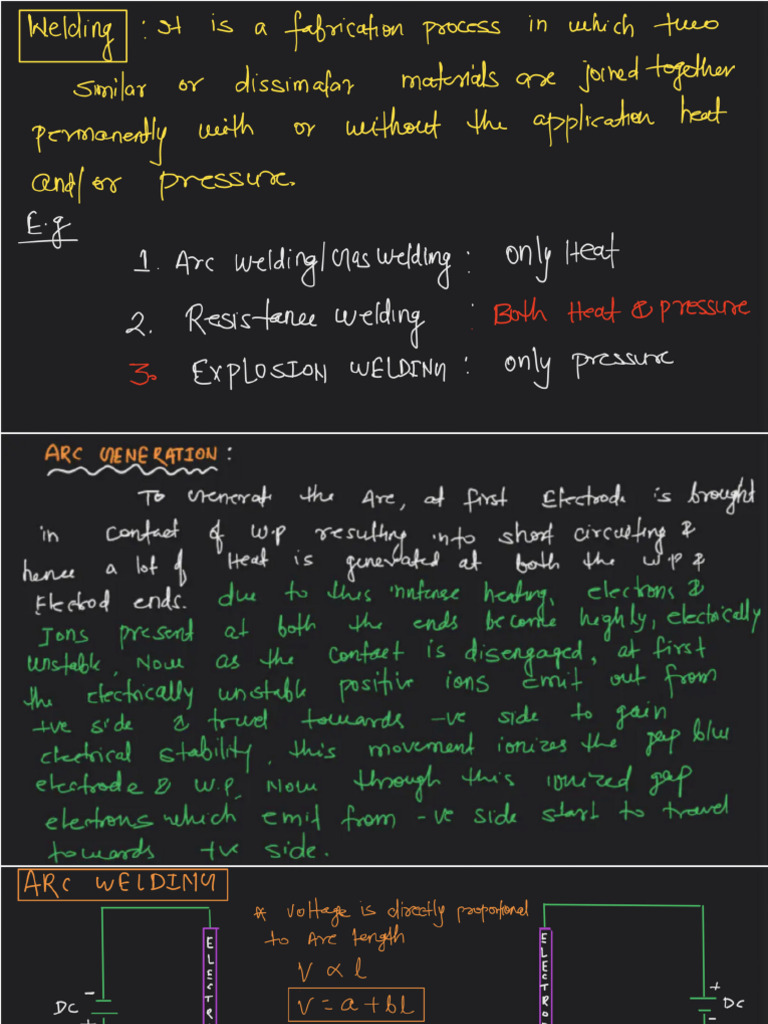 Welding : It is a fabrication process in which two
similar or dissimafar materials are joined together
permanently with or without the application heat
and/or pressure.
E.g
1. Arc welding/Gas welding : only Heat
2. Resistance welding : Both Heat & pressure
3. EXPLOSION WELDING : only pressure
ARC GENERATION :
To Generate the Arc, at first Electrode is brought
in contact of w.p resulting into short circuiting &
hence a lot of Heat is generated at both the w.p &
Electrod ends. due to this intense heating, electrons &
Ions present at both the ends become highly, electrically
unstable, Now as the contact is disengaged, at first
the electrically unstable positive ions emit out from
+ve side & travel towards -ve side to gain
electrical stability, this movement ionizes the gap b/w
electrode & w.p, Now through this ionized gap
electrons which emit from -ve side start to travel
towards +ve side.
ARC WELDING
* voltage is directly proportional
to Arc length
V ∝ l
V = a + bl
ELECTR
DC
-
+
ELECTRO
+
DC
-